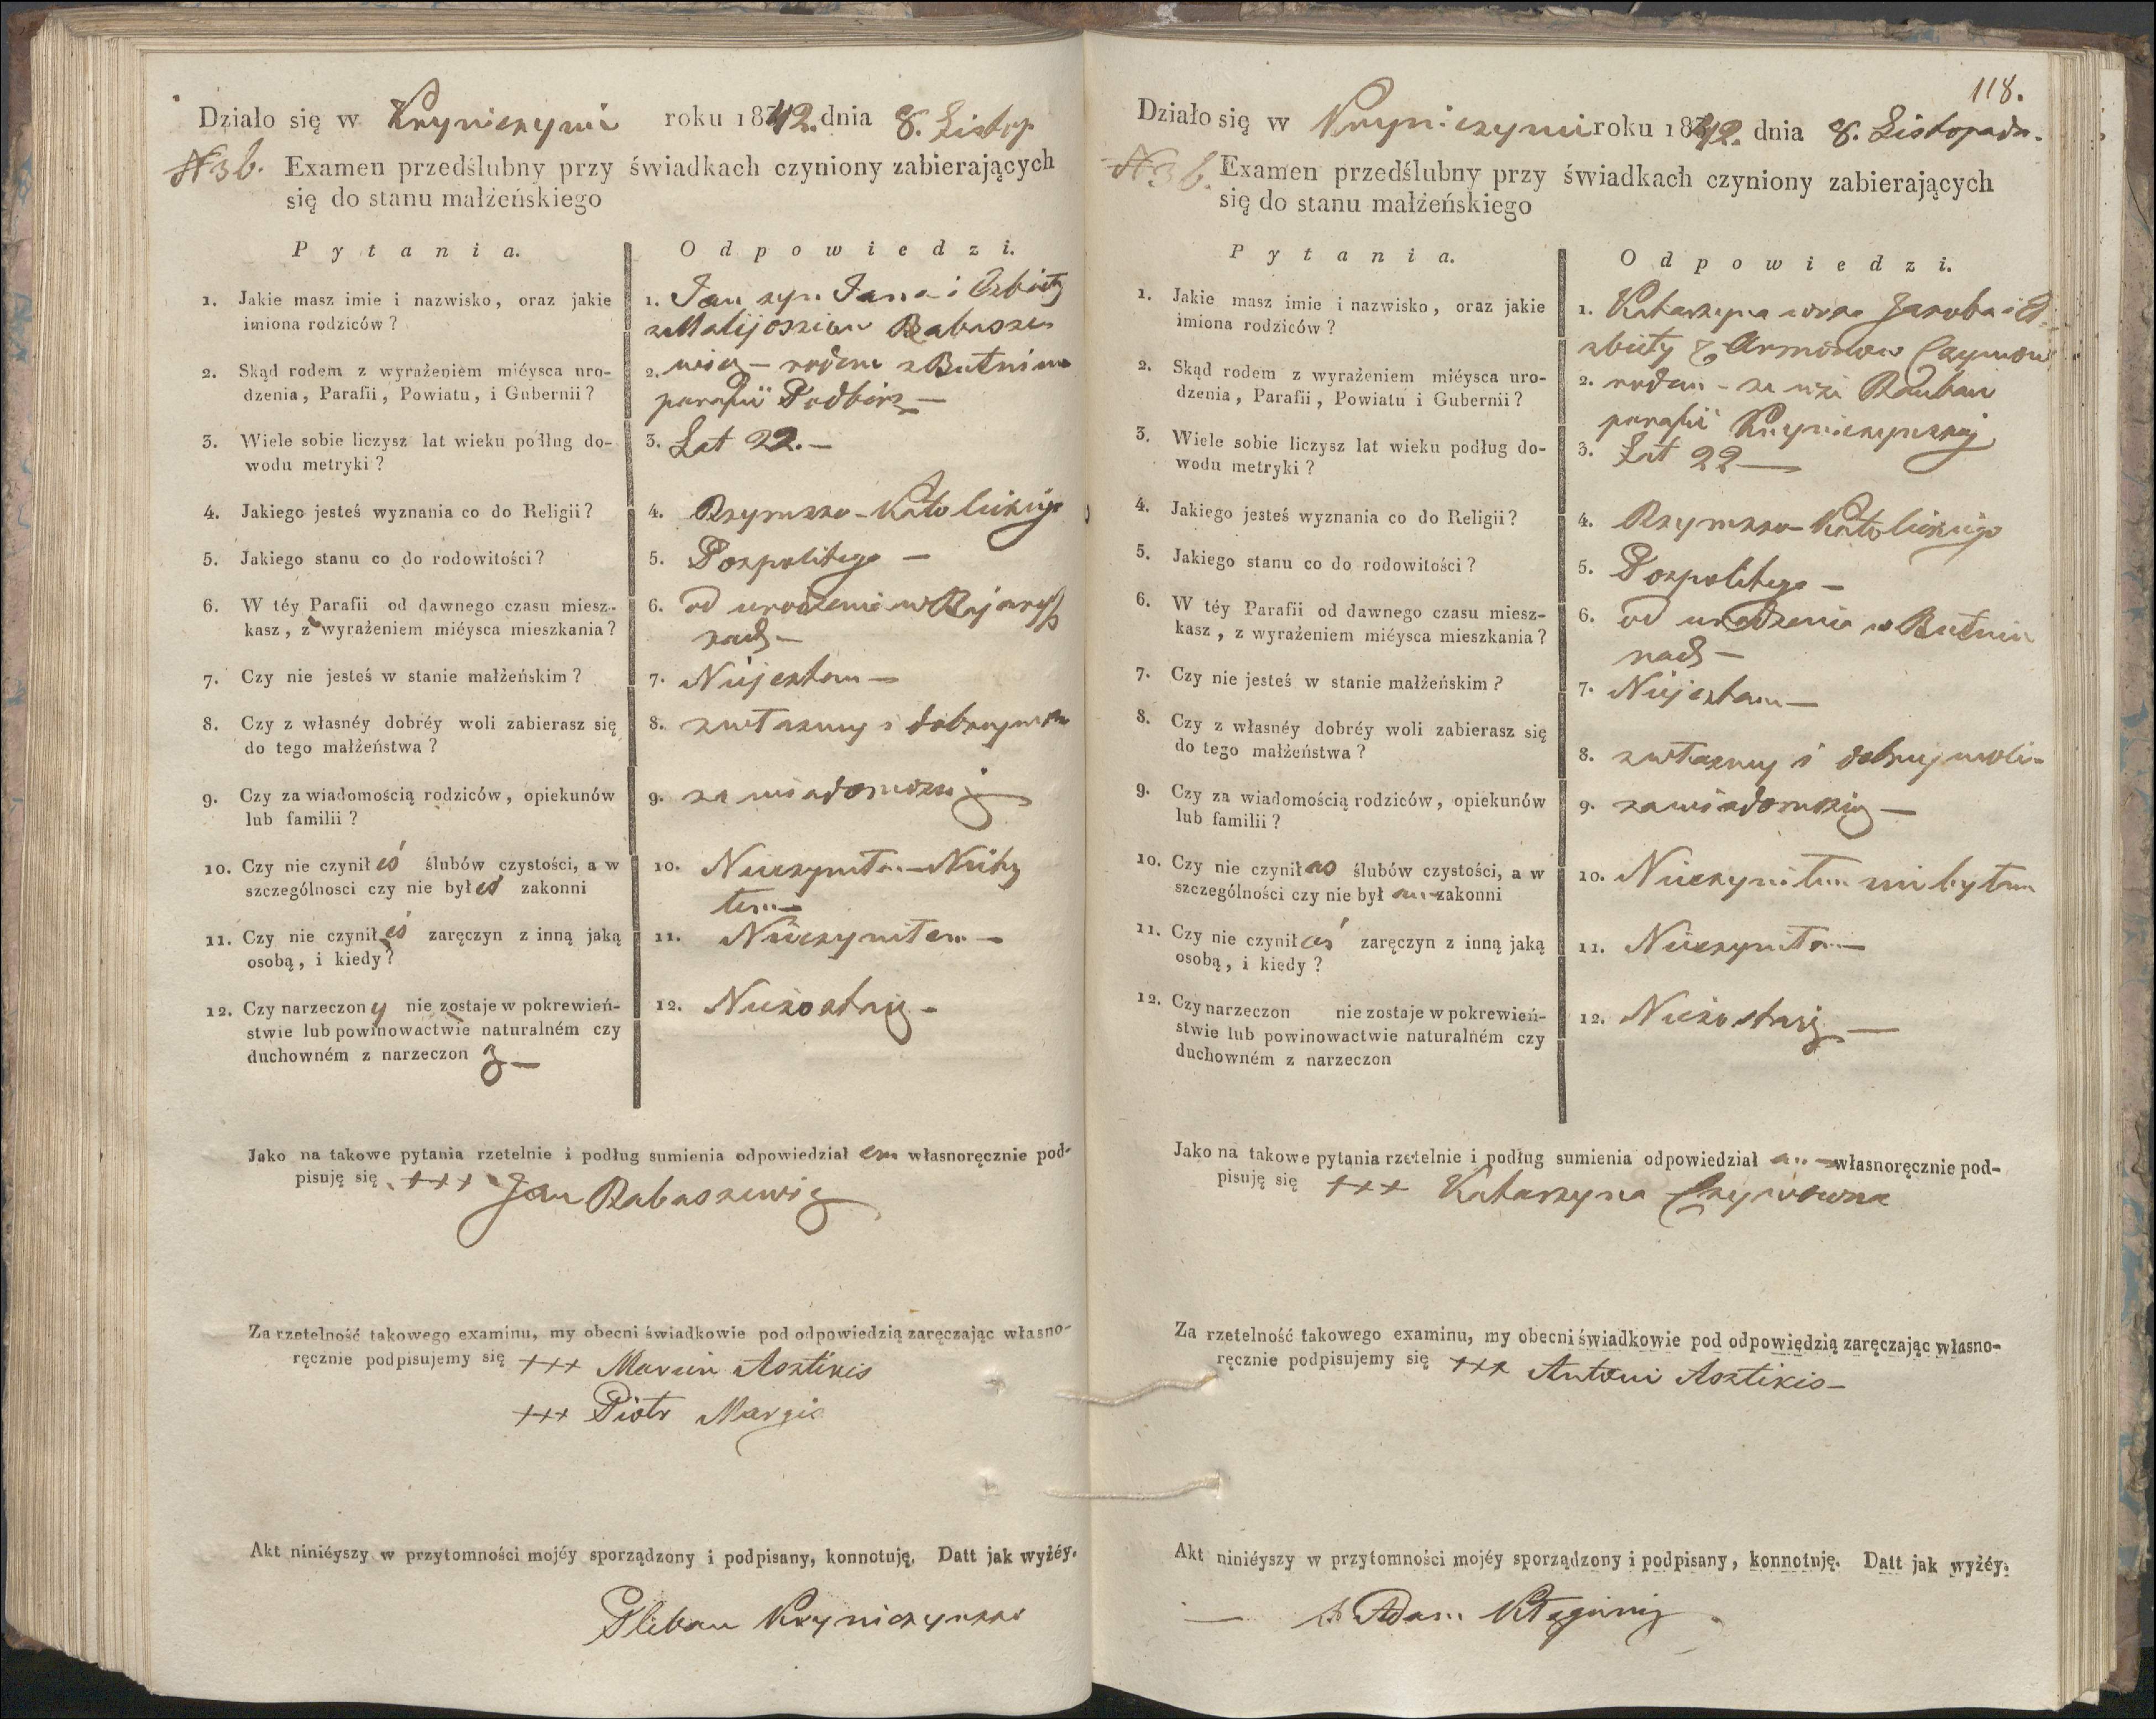 Działo się w Kryniczynie roku 1842. dnia 8. Listop.
N 36. Examen przedślubny przy świadkach czyniony zabierających
się do stanu małżeńskiego
Pytania.
Odpowiedzi.
1. Jakie masz imie i nazwisko, oraz jakie
imiona rodziców?
1. Jan syn Jana i Elżbiety
z Babaszewicz
2. Skąd rodem z wyrażeniem miéysca uro-
dzenia, Parafii, Powiatu, i Gubernii?
2. rodem z
parafii Podbirz —
3. Wiele sobie liczysz lat wieku podług do-
wodu metryki?
3. Lat 22. —
4. Jakiego jesteś wyznania co do Religii?
4. Rzymsko-Katolickiego
5. Jakiego stanu co do rodowitości?
5. Pospolitego —
6. W téy Parafii od dawnego czasu miesz-
kasz, z wyrażeniem miéysca mieszkania?
6. od urodzenia w
7. Czy nie jesteś w stanie małżeńskim?
7. Niejestem —
8. Czy z własnéy dobréy woli zabierasz się
do tego małżeństwa?
8. z własney i dobrey woli
9. Czy za wiadomością rodziców, opiekunów
lub familii?
9. za wiadomością
10. Czy nie czynił eś ślubów czystości, a w
szczególnosci czy nie był eś zakonni
10. Nieczyniłem — Nieby
łem —
11. Czy nie czynił eś zaręczyn z inną jaką
osobą, i kiedy?
11. Nieczyniłem —
12. Czy narzeczon y nie zostaje w pokrewień-
stwie lub powinowactwie naturalném czy
duchowném z narzeczon ą —
12. Niezostaię —
Jako na takowe pytania rzetelnie i podług sumienia odpowiedział em własnoręcznie pod-
pisuję się +++ Jan Babaszewicz
Za rzetelność takowego examinu, my obecni świadkowie pod odpowiedzią zaręczając własno-
ręcznie podpisujemy się +++ Marcin Asztikis
+++ Piotr Margis
Akt niniéyszy w przytomności mojéy sporządzony i podpisany, konnotuję. Datt jak wyżéy.
Pleban Kryniczynski
118.
Działo się w Kryniczynie roku 1842. dnia 8. Listopada.
N 36. Examen przedślubny przy świadkach czyniony zabierających
się do stanu małżeńskiego
Pytania.
Odpowiedzi.
1. Jakie masz imie i nazwisko, oraz jakie
imiona rodziców?
1. Katarzyna corka Jakoba i El-
zbiety z
2. Skąd rodem z wyrażeniem miéysca uro-
dzenia, Parafii, Powiatu i Gubernii?
2. rodem
parafii Kryniczynskiej
3. Wiele sobie liczysz lat wieku podług do-
wodu metryki?
3. Lat 22 —
4. Jakiego jesteś wyznania co do Religii?
4. Rzymsko-Katolickiego
5. Jakiego stanu co do rodowitości?
5. Pospolitego —
6. W téy Parafii od dawnego czasu miesz-
kasz, z wyrażeniem miéysca mieszkania?
6. od urodzenia w
7. Czy nie jesteś w stanie małżeńskim?
7. Niejestem —
8. Czy z własnéy dobréy woli zabierasz się
do tego małżeństwa?
8. z własney i dobrey woli —
9. Czy za wiadomością rodziców, opiekunów
lub familii?
9. za wiadomością —
10. Czy nie czynił aś ślubów czystości, a w
szczególności czy nie był aś zakonni
10. Nieczyniłam nie byłam
11. Czy nie czynił aś zaręczyn z inną jaką
osobą, i kiedy?
11. Nieczyniłam —
12. Czy narzeczon nie zostaje w pokrewień-
stwie lub powinowactwie naturalném czy
duchowném z narzeczon
12. Niezostaię —
Jako na takowe pytania rzetelnie i podług sumienia odpowiedział am własnoręcznie pod-
pisuję się +++ Katarzyna
Za rzetelność takowego examinu, my obecni świadkowie pod odpowiedzią zaręczając własno-
ręcznie podpisujemy się +++ Antoni Asztikis —
Akt niniéyszy w przytomności mojéy sporządzony i podpisany, konnotuję. Datt jak wyżéy.
— X Adam